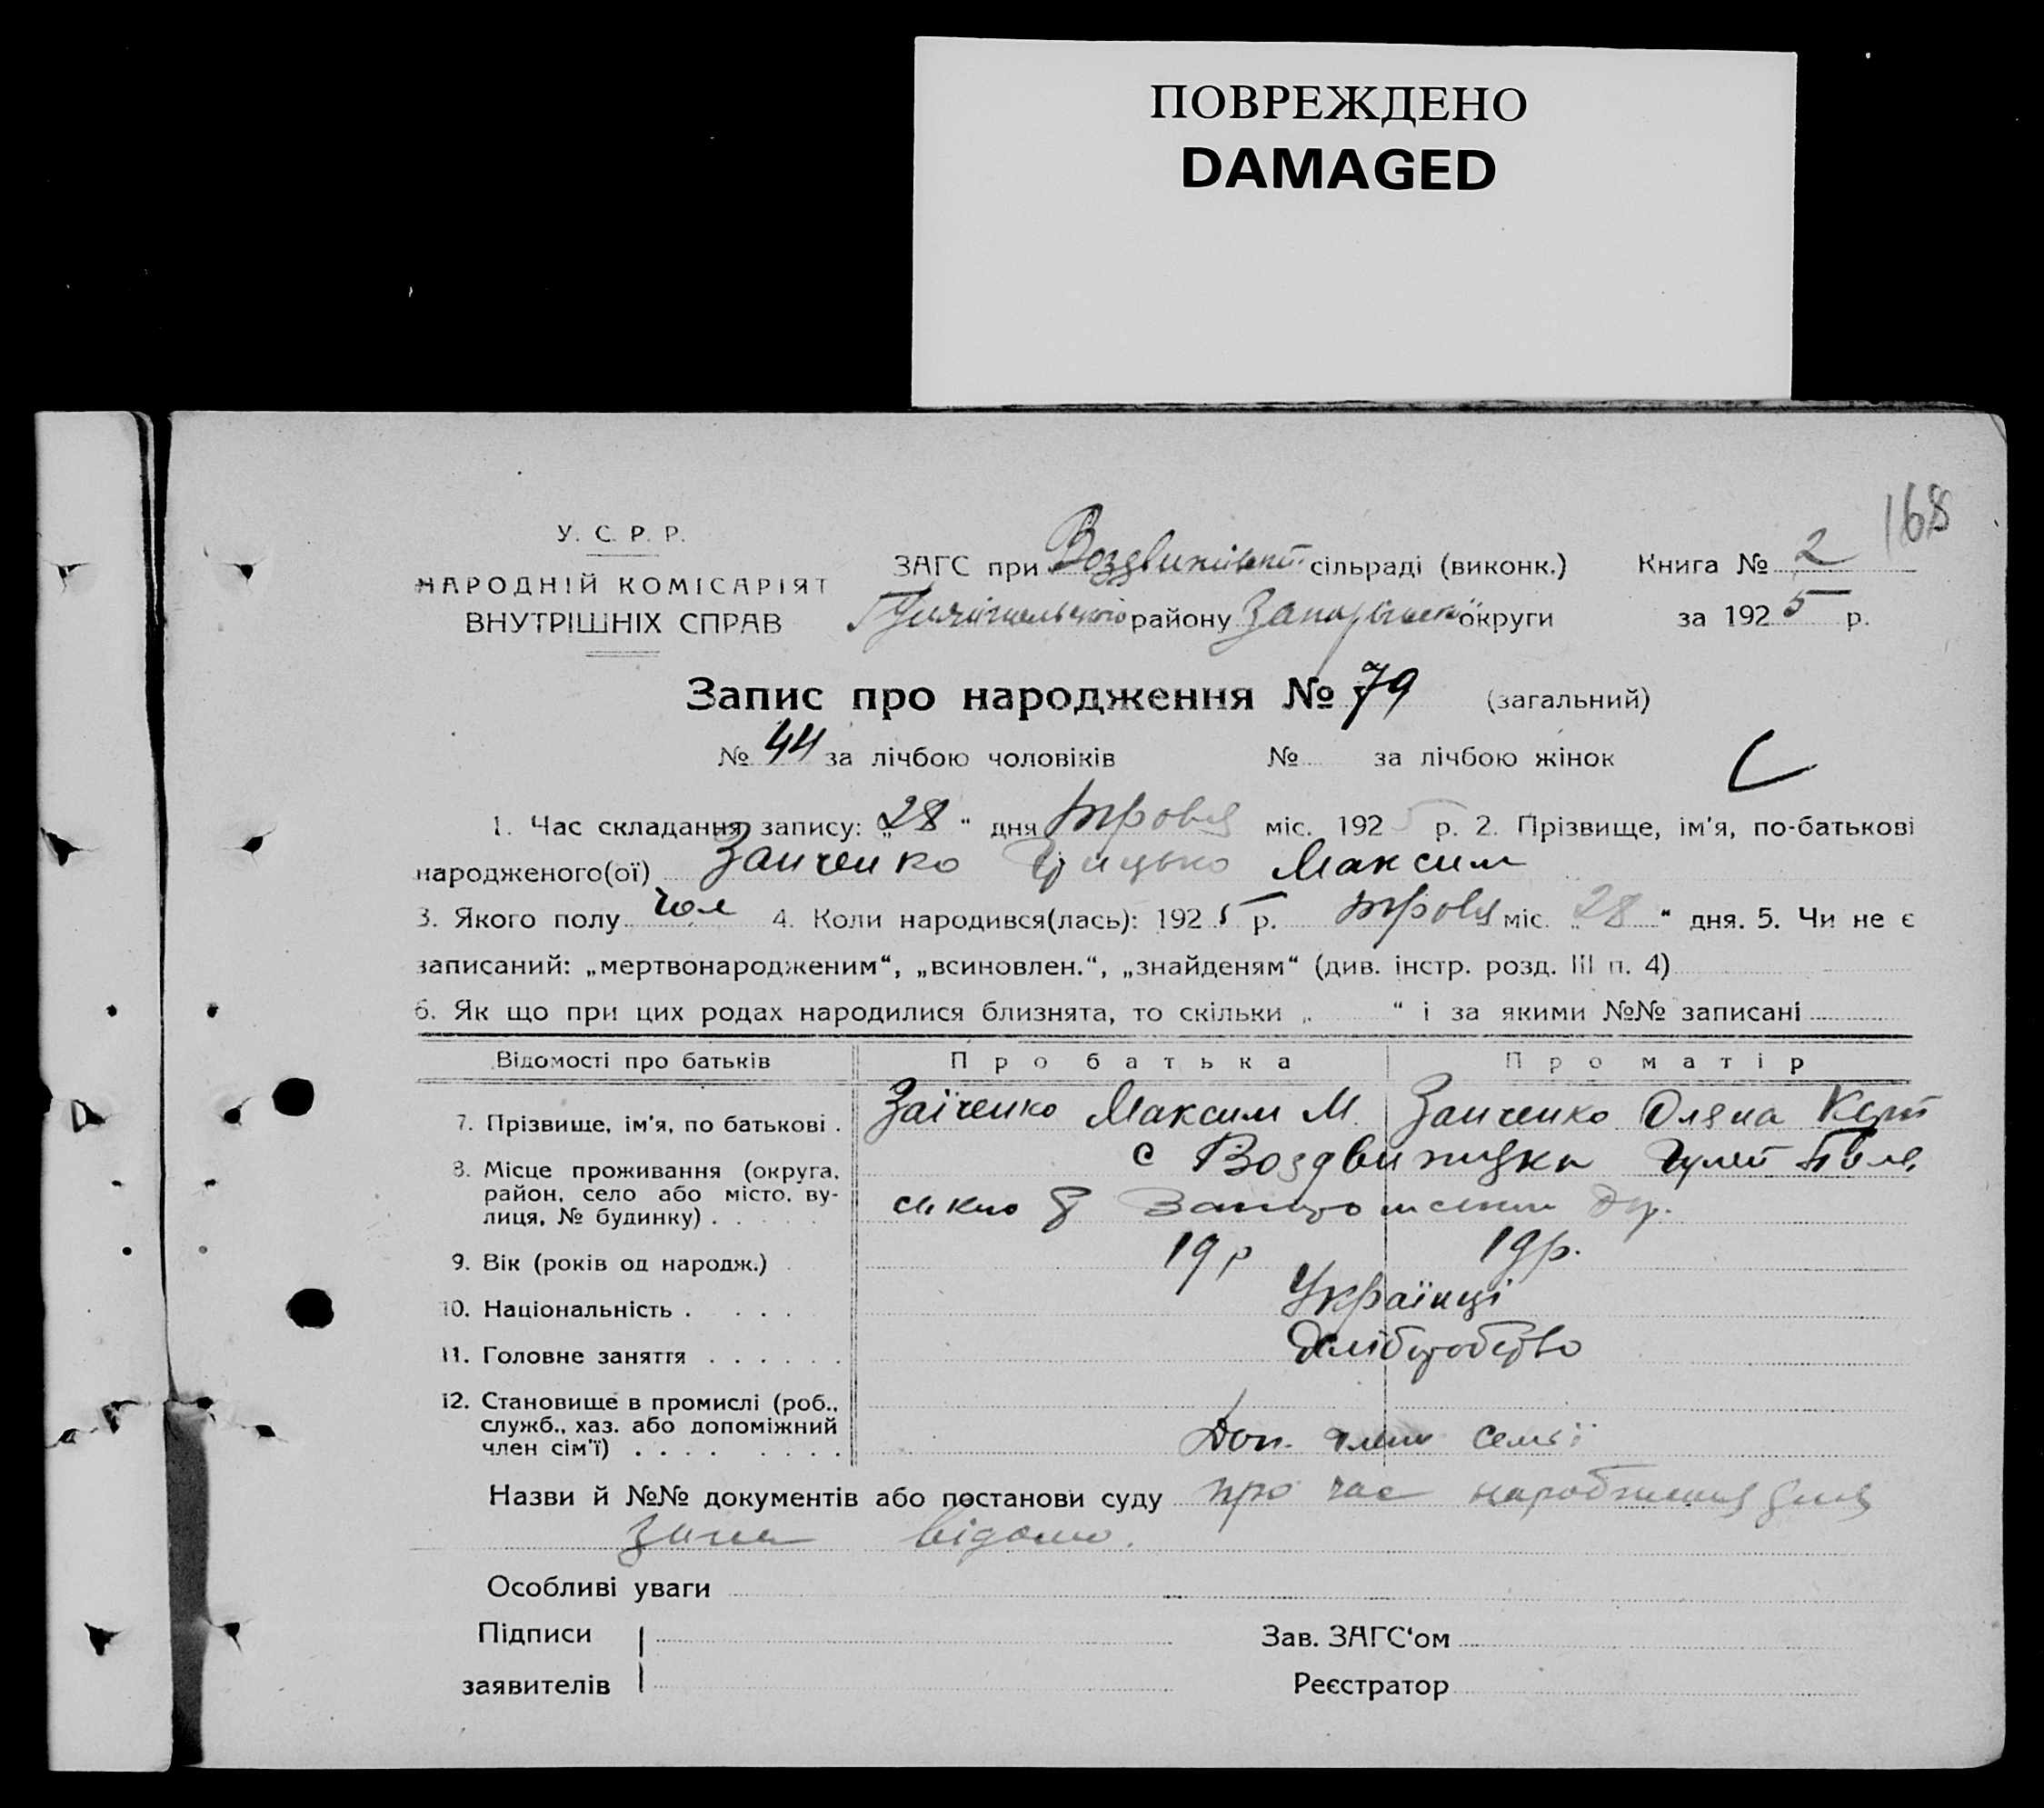 ПОВРЕЖДЕНО
DAMAGED
168
У. С. Р. Р.
НАРОДНІЙ КОМІСАРІЯТ
ВНУТРІШНІХ СПРАВ
ЗАГС при сільраді (виконк.)
району округи
Книга № 2
за 1925 р.
Запис про народження № 79 (загальний)
№ 44 за лічбою чоловіків № за лічбою жінок
1. Час складання запису: „28“ дня міс. 1925 р. 2. Прізвище, ім'я, по-батькові
народженого(ої) Заиченко Грицько Максим
3. Якого полу чол 4. Коли народився(лась): 1925 р. міс. „28“ дня. 5. Чи не є
записаний: „мертвонародженим“, „всиновлен.“, „знайденям“ (див. інстр. розд. III п. 4)
6. Як що при цих родах народилися близнята, то скільки „ “ і за якими №№ записані
Відомості про батьків Про батька Про матір
7. Прізвище, ім'я, по батькові . Заїченко Максим М. Заиченко Оляна
8. Місце проживання (округа, район, село або місто, вулиця, № будинку) . . . . . с Воздвижи
9. Вік (років од народж.) . 19 р 19 р.
10. Національність . . . . Українці
11. Головне заняття . . . . . .
12. Становище в промислі (роб., служб., хаз. або допоміжний член сім'ї) . . . . . . . . Доп. член семьї
Назви й №№ документів або постанови суду про час
відомо.
Особливі уваги
Підписи
заявителів
Зав. ЗАГС‘ом
Реєстратор